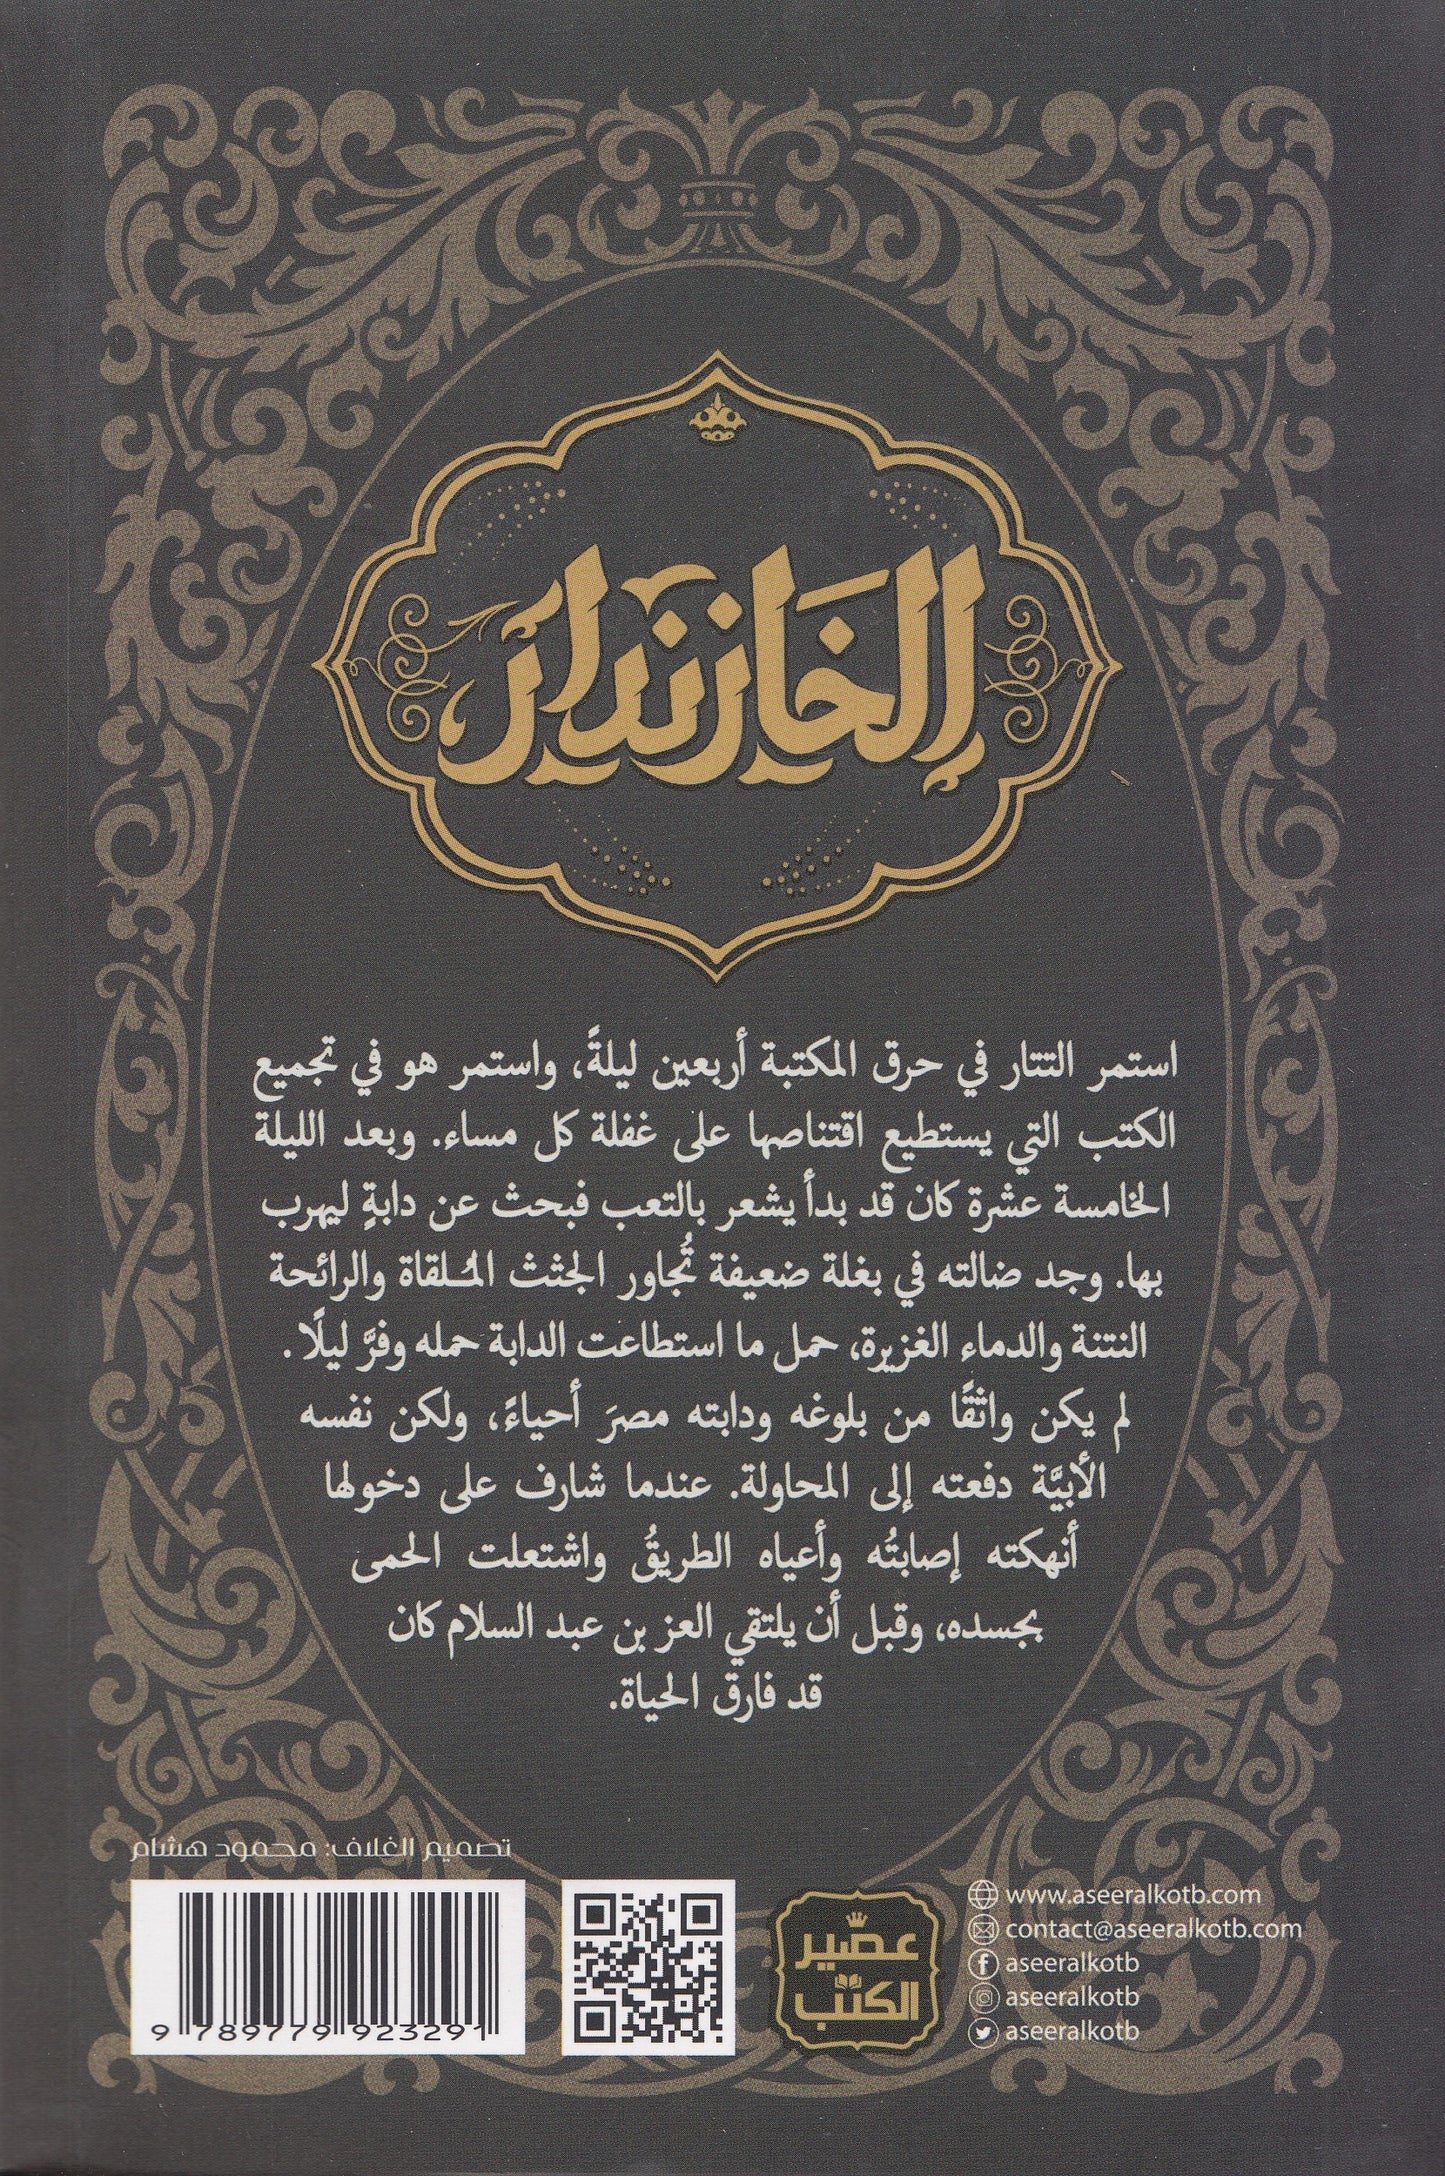 الخَازندار
استمر التتار في حرق المكتبة أربعين ليلةً، واستمر هو في تجميع
الكتب التي يستطيع اقتناصها على غفلة كل مساء. وبعد الليلة
الخامسة عشرة كان قد بدأ يشعر بالتعب فبحث عن دابةٍ ليهرب
بها. وجد ضالته في بغلة ضعيفة تُجاور الجثث المُلقاة والرائحة
النتنة والدماء الغزيرة، حمل ما استطاعت الدابة حمله وفرَّ ليلًا.
لم يكن واثقًا من بلوغه ودابته مصرَ أحياءً، ولكن نفسه
الأبيَّة دفعته إلى المحاولة. عندما شارف على دخولها
أنهكته إصابتُه وأعياه الطريقُ واشتعلت الحمى
بجسده، وقبل أن يلتقي العز بن عبد السلام كان
قد فارق الحياة.
تصميم الغلاف: محمود هشام
9 789779 923291
عصير
الكتب
www.aseeralkotb.com
contact@aseeralkotb.com
aseeralkotb
aseeralkotb
aseeralkotb